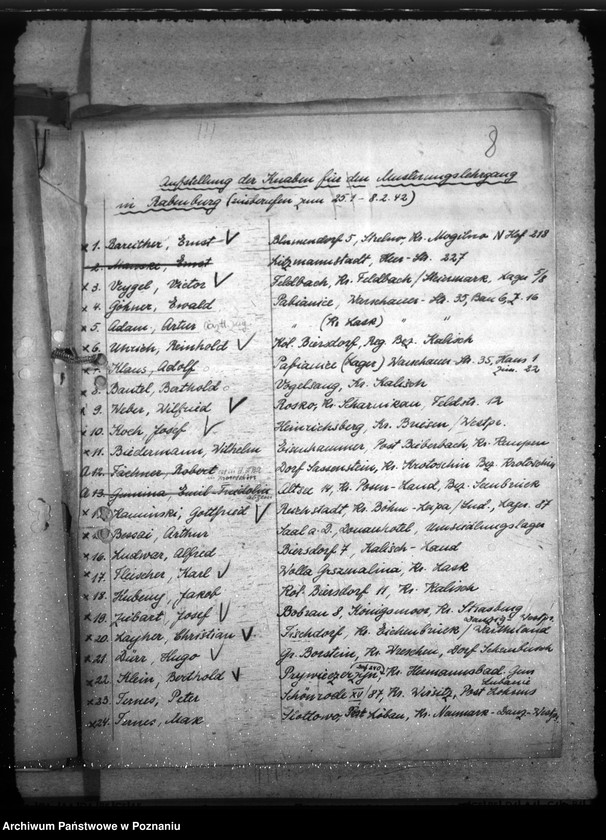 8
Aufstellung der Knaben für den Musterungslehrgang
in Rabenburg (einberufen zum 25.1 - 8.2.42)
x 1. Bareither, Ernst V Blumendorf 5, Strelno, Kr. Mogilno N Hof 218
2. Manske, Ernst Litzmannstadt, Str. 227
x 3. Veygel, Victor V Feldbach, Kr. Feldbach / Steiermark, Lager 5/8
x 4. Göhner, Ewald Pabianice, Warschauer-Str. 35, Bau 6, Z. 16
x 5. Adam, Artur " (Kr. Lask) " "
x 6. Unrich, Reinhold V Rof. Biersdorf, Reg. Bez. Kalisch
x 7. Klaus, Adolf Pabianice (Lager) Warschauer-Str. 35, Haus 1 Zim. 22
x 8. Bantel, Berthold Vogelsang, Kr. Kalisch
x 9. Weber, Wilfried V Rosko, Kr. Scharnikau, Feldstr. 12
x 10. Koch, Josef V Heinrichsberg, Kr. Briesen / Westpr.
x 11. Biedermann, Wilhelm Eisenhammer, Post Bieberbach, Kr. Kempen
A 12. Fechner, Robert Dorf Sassenstein, Kr. Krotoschin Bez. Krotoschin
A 13. Gumina, Emil-Fridolin Altsee 14, Kr. Posen-Land, Bez.
x Kaminski, Gottfried V Reichstadt, Kr. Böhm-Leipa / Sud., Lager 87
x Bessai, Arthur Saal a. D., Donauhotel, Umsiedlungslager
x 16. Ludwar, Alfred Biersdorf 7, Kalisch-Land
x 17. Fleischer, Karl V Wolla Grzmalina, Kr. Lask
x 18. Hubeny, Jakob Rof. Biersdorf 11, Kr. Kalisch
x 19. Jubart, Josef V Bobrau 8, Königsmoor, Kr. Strasburg / Danzig-Westpr.
x 20. Layher, Christian V. Fischdorf, Kr. Eichenbrück / Wartheland
x 21. Dürr, Hugo V Gr. Borstein, Kr. Wreschen, Dorf
x 22. Klein, Berthold V Kr. Hermannsbad, Gem Lubanie
x 23. Ternes, Peter Schönrode XV / 87, Kr. Wirsitz, Post
x 24. Ternes, Max Slottowo, Post Löbau, Kr. Neumark-Danz-Westpr.
Archiwum Państwowe w Poznaniu